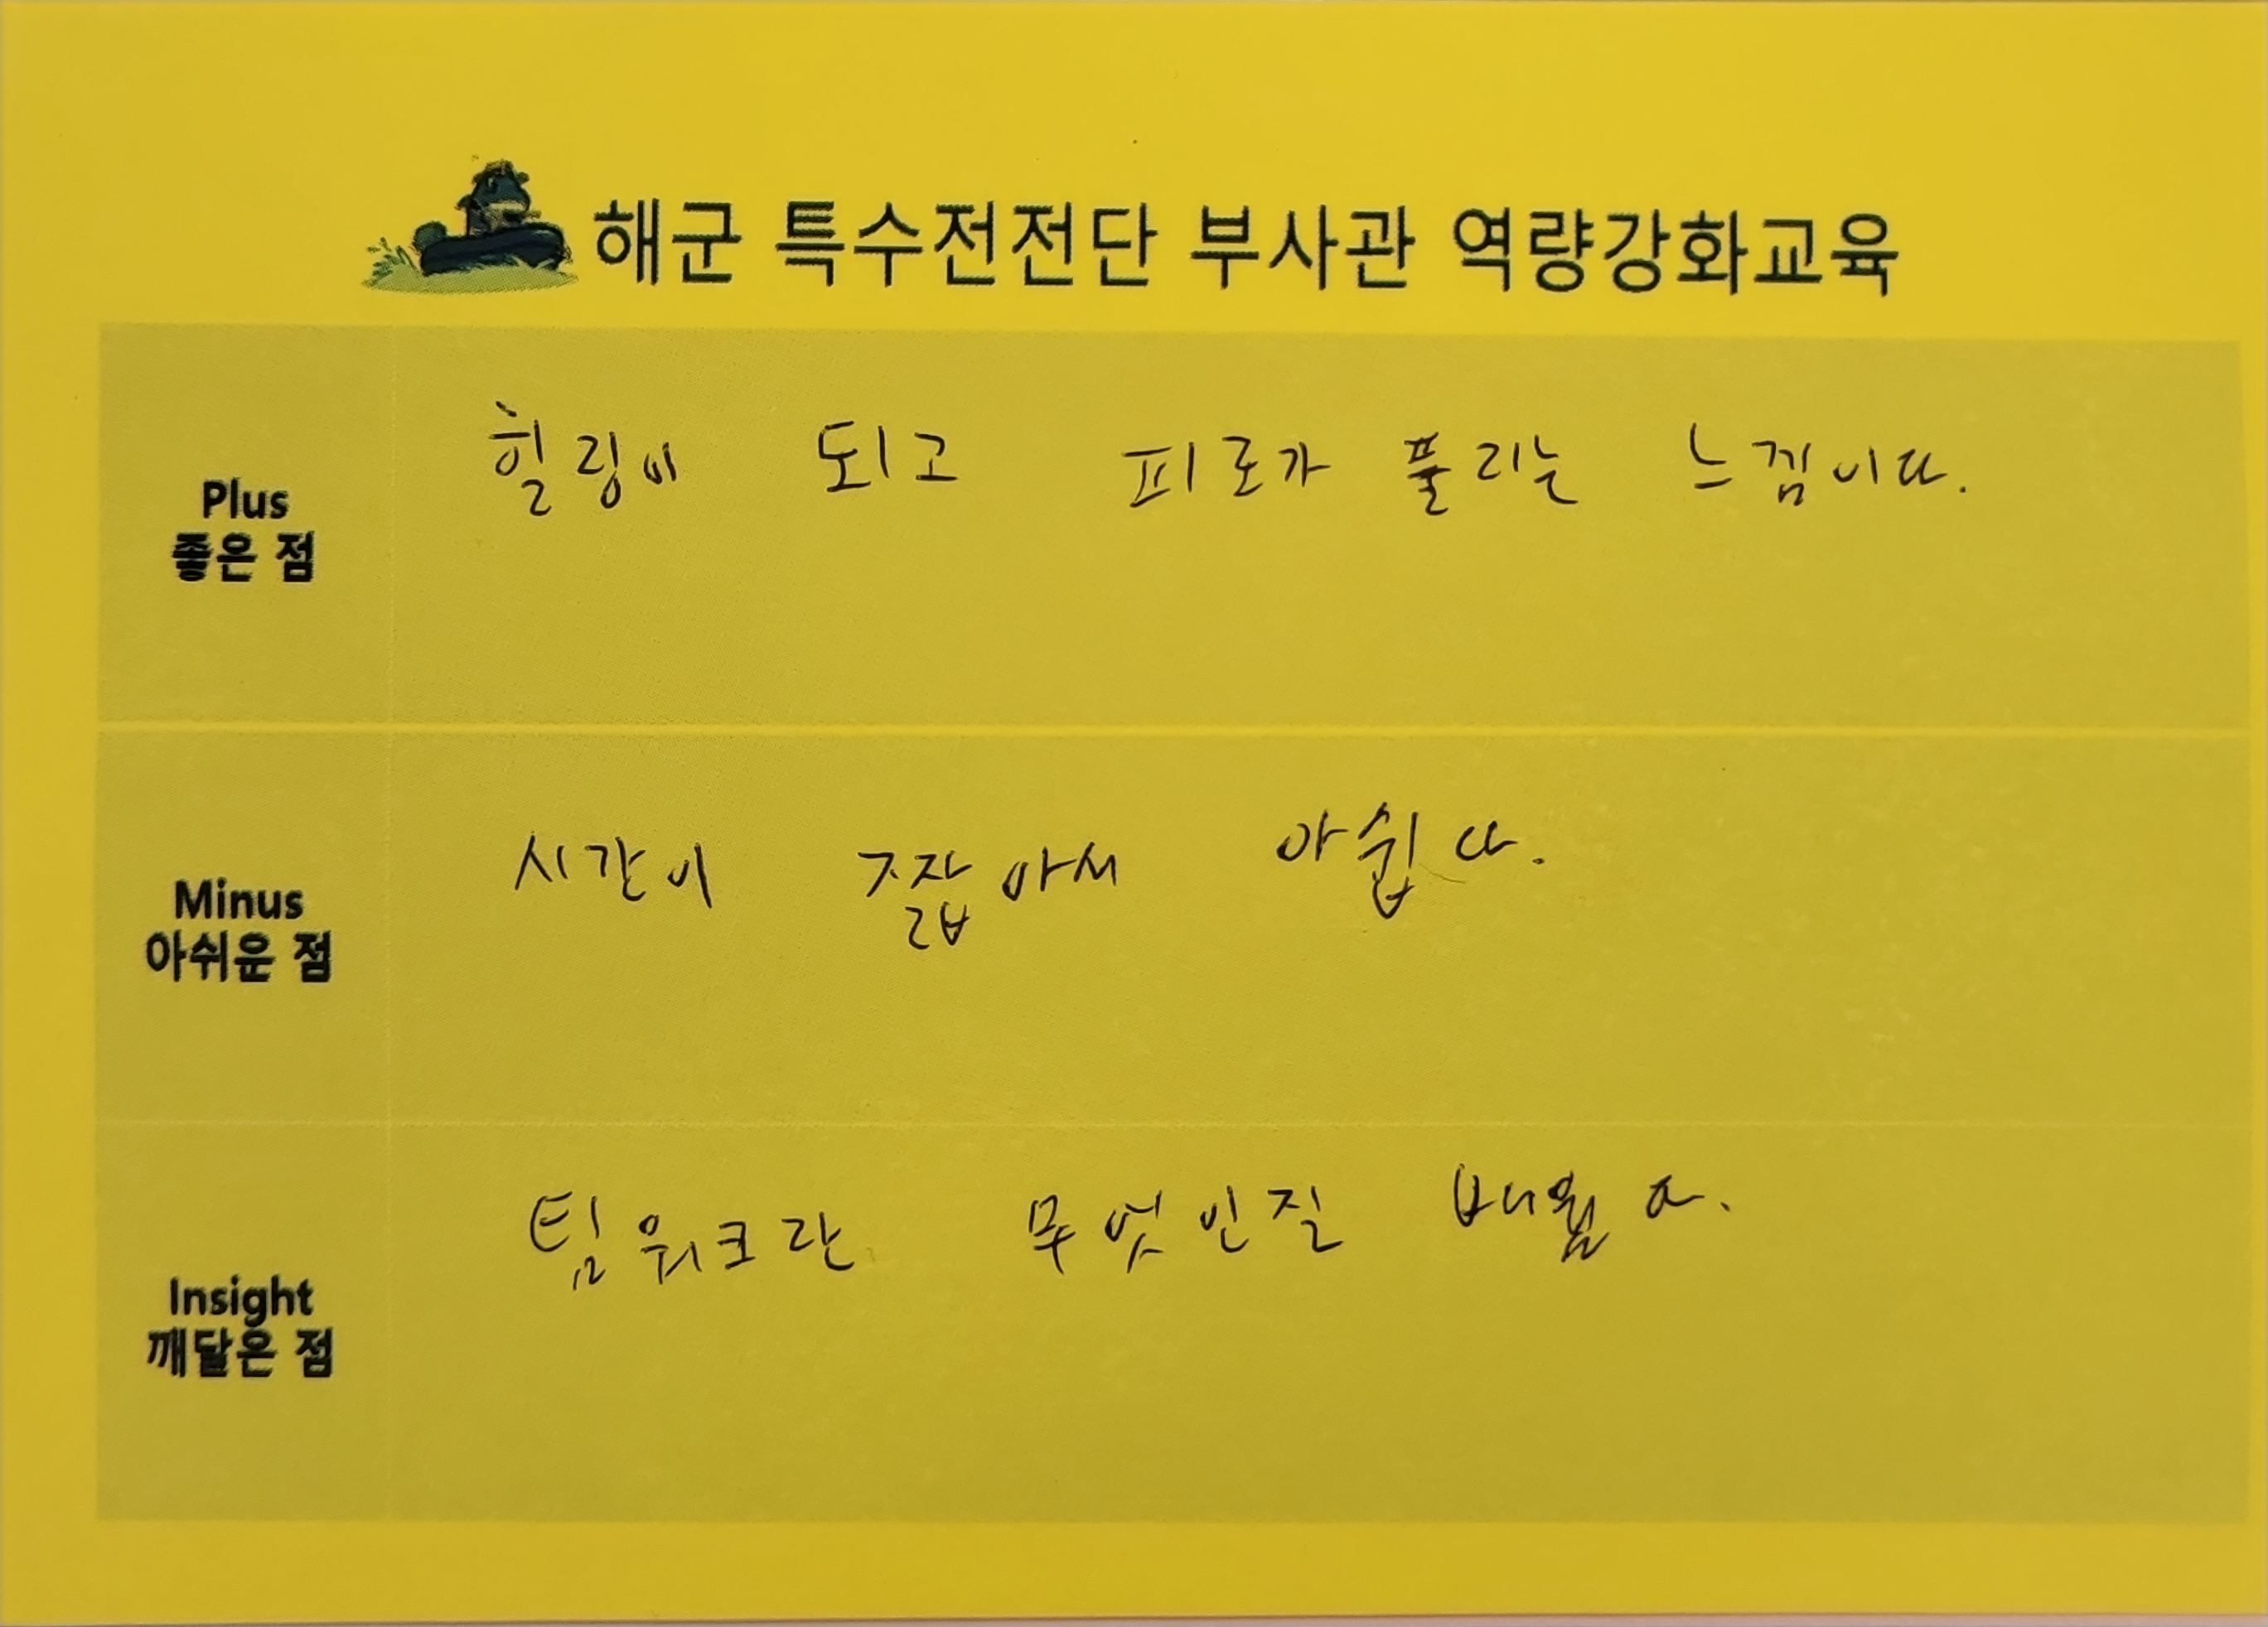 해군 특수전전단 부사관 역량강화교육
Plus
좋은 점
힐링이 되고 피로가 풀리는 느낌이다.
Minus
아쉬운 점
시간이 짧아서 아쉽다.
Insight
깨달은 점
팀워크란 무엇인질 배웠다.